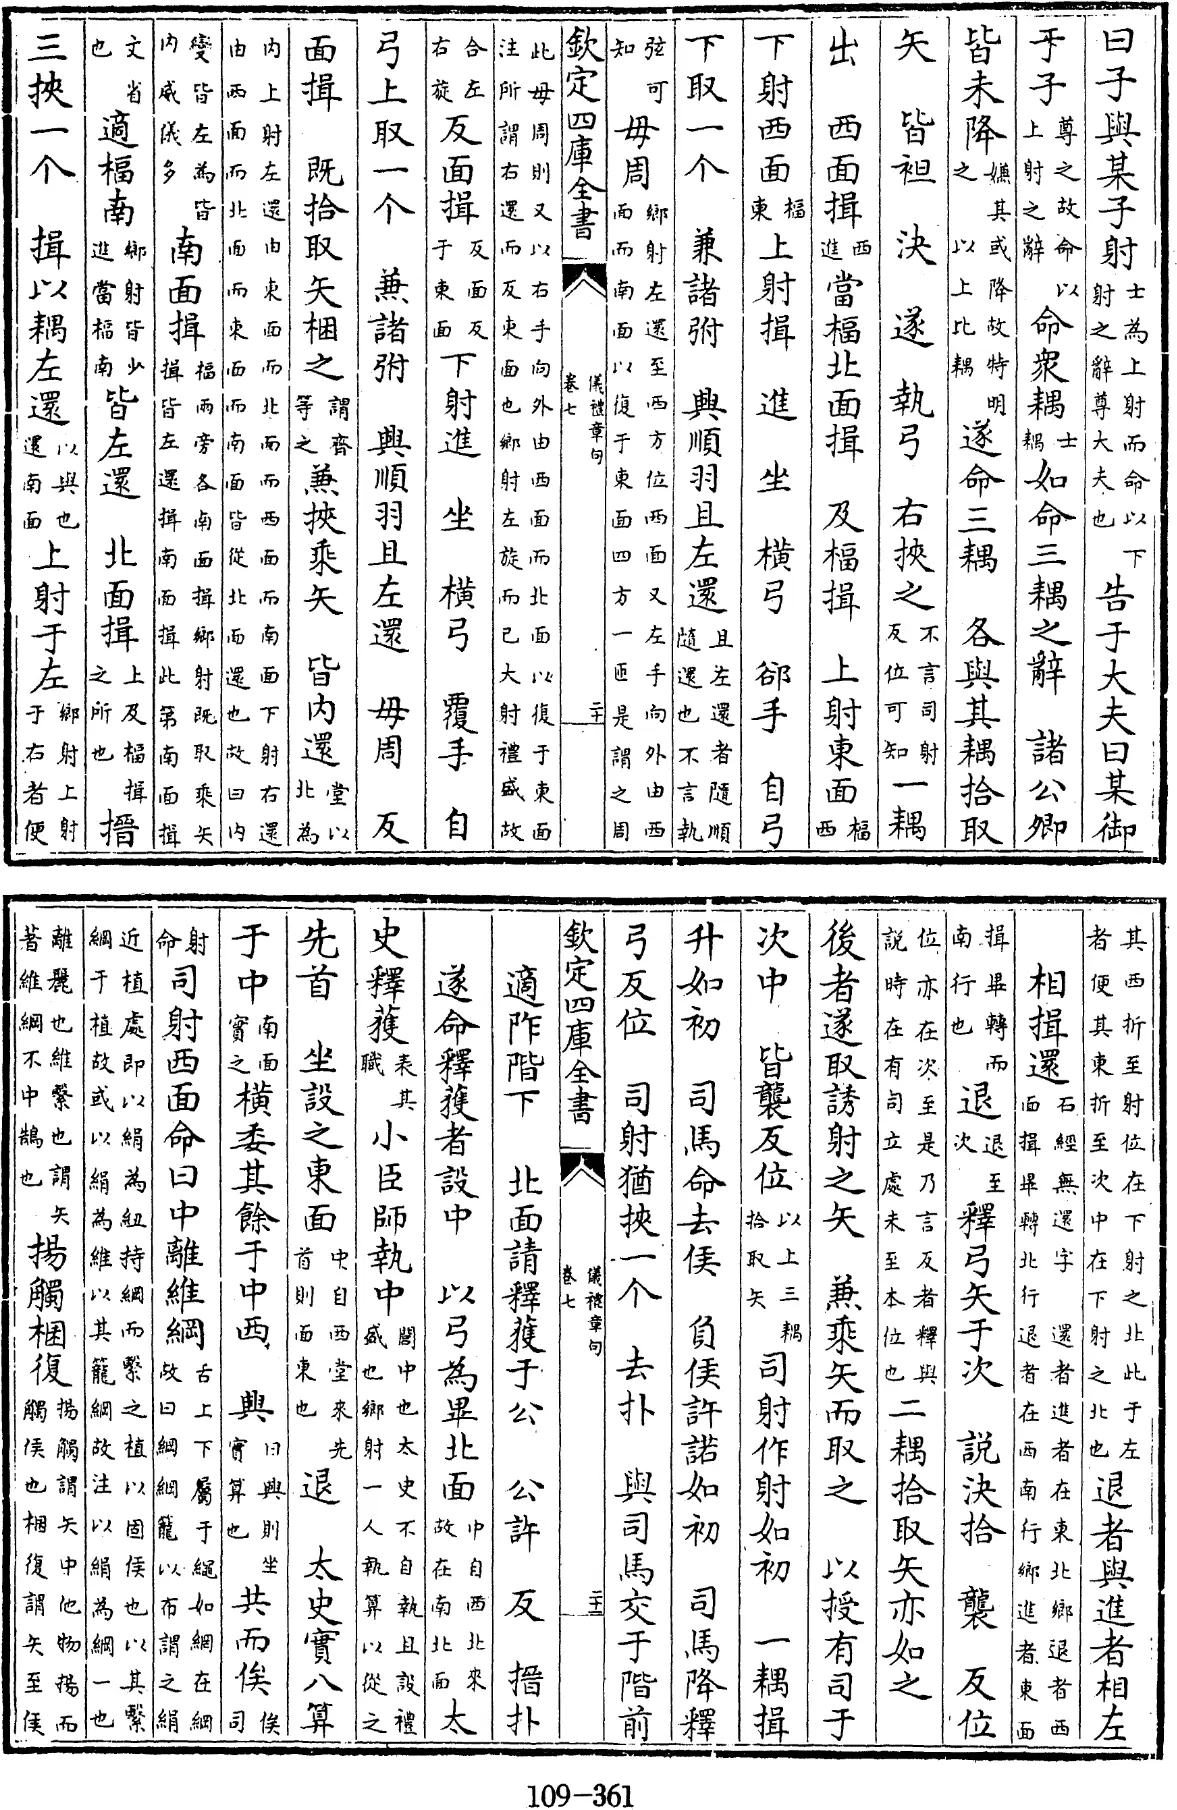 曰子與某子射士為上射而命以下射之辭尊大夫也告于大夫曰某御
于子尊之故命以上射之辭命衆耦士耦如命三耦之辭　諸公卿
皆未降嫌其或降故特明之以上比耦遂命三耦　各與其耦拾取
矢　皆袒　決　遂　執弓　右挾之不言司射反位可知一耦
出　西面揖西進當楅北面揖　及楅揖　上射東面楅西
下射西面楅東上射揖　進　坐　橫弓　郤手　自弓
下取一个　兼諸弣　興順羽且左還且左還者隨順隨還也不言執
弦可知毋周鄉射左還至西方位西面又左手向外由西面而南面以復于東面四方一匝是謂之周
欽定四庫全書　儀禮章句　卷七　二十
此毋周則又以右手向外由西面而北面以復于東面注所謂右還而反東面也鄉射左旋而已大射禮盛故
合左右旋反面揖反面反于東面下射進　坐　橫弓　覆手　自
弓上取一个　兼諸弣　興順羽且左還　毋周　反
面揖　既拾取矢梱之謂齊等之兼挾乘矢　皆内還堂以北為
内上射左還由東面而北面而西面而南面下射右還由西面而北面而東面而南面皆從北面還也故曰内
變皆左為皆内威儀多南面揖楅兩旁各南面揖鄉射既取乘矢揖皆左還揖南面揖此第南面揖
文省也適楅南鄉射皆少進當楅南皆左還　北面揖上及楅揖之所也搢
三挾一个　揖以耦左還以與也還南面上射于左鄉射上射于右者便
其西折至射位在下射之北此于左者便其東折至次中在下射之北也退者與進者相左
相揖還石經無還字還者進者在東北鄉退者西面揖畢轉北行退者在西南行鄉進者東面
揖畢轉而南行也退退至次釋弓矢于次　説決拾　襲　反位
位亦在次至是乃言反者釋與説時在有司立處未至本位也二耦拾取矢亦如之
後者遂取誘射之矢　兼乘矢而取之　以授有司于
次中　皆襲反位以上三耦拾取矢司射作射如初　一耦揖
升如初　司馬命去侯　負侯許諾如初　司馬降釋
弓反位　司射猶挾一个　去扑　與司馬交于階前
欽定四庫全書　儀禮章句　卷七　二十一
適阼階下　北面請釋獲于公　公許　反　搢扑
遂命釋獲者設中　以弓為畢北面中自西北來故在南北面太
史釋獲表其職小臣師執中閭中也太史不自執且設禮盛也鄉射一人執算以從之
先首　坐設之東面中自西堂來先首則面東也退　太史實八算
于中南面實之橫委其餘于中西　興曰興則坐實算也共而俟俟司
射命司射西面命曰中離維綱舌上下屬于繩如網在綱故曰綱綱籠以布謂之絹
近植處即以絹為紐持綱而繫之植以固侯也以其繫綱于植故或以絹為維以其籠綱故注以絹為綱一也
離麗也維繫也謂矢著維綱不中鵠也揚觸梱復揚觸謂矢中他物揚而觸侯也梱復謂矢至侯
109-361